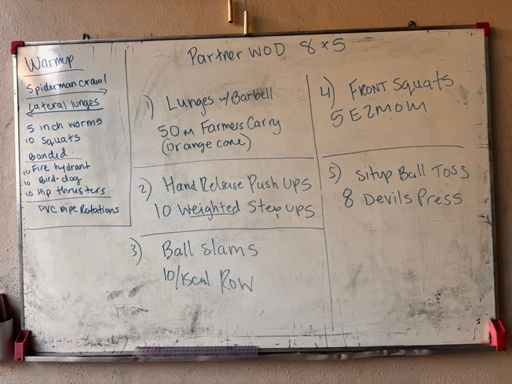 Warmup
Spiderman crawl
Lateral lunges
5 inch worms
10 Squats
Banded:
10 Fire hydrant
10 Bird-dog
10 Hip thrusters
PVC pipe Rotations
Partner WOD 8x5
1) Lunges w/ Barbell
50m Farmers Carry
(orange cone)
2) Hand Release Push Ups
10 Weighted Step ups
3) Ball Slams
10/15cal Row
4) Front Squats
5 E2MOM
5) Situp Ball Toss
8 Devils Press